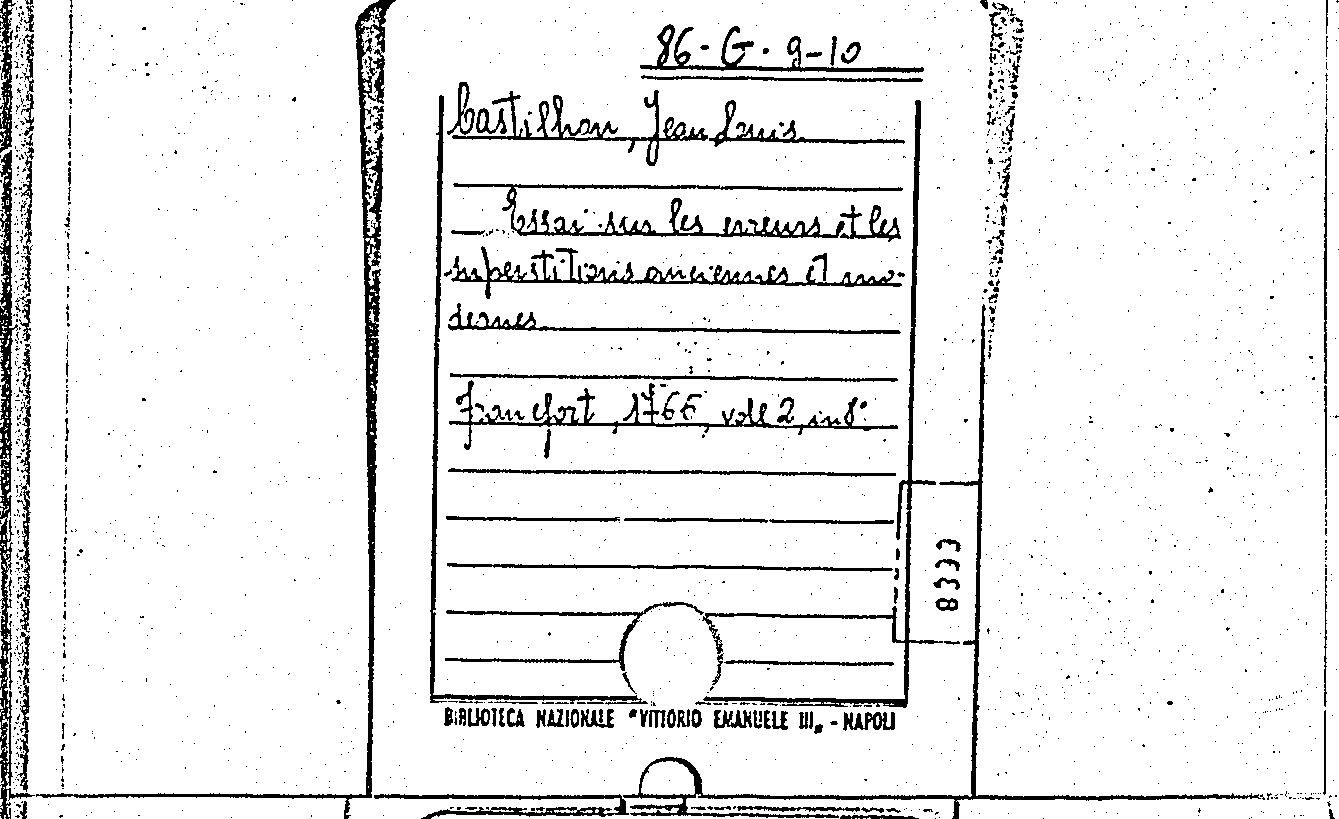 86·G·9-10
Castilhon, Jean Louis
Essai sur les erreurs et les
superstitions anciennes et mo-
dernes
Francfort, 1766, voll 2, in 8°
8333
BIBLIOTECA NAZIONALE "VITTORIO EMANUELE III„ - NAPOLI